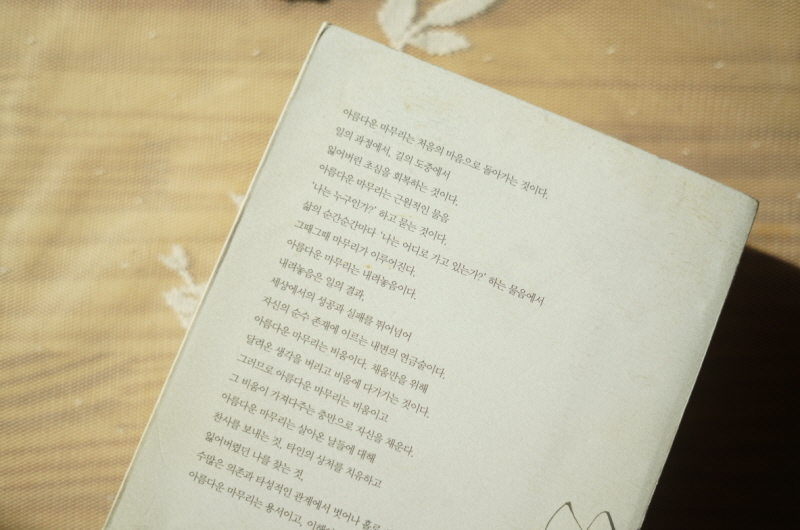 아름다운 마무리는 처음의 마음으로 돌아가는 것이다.
일의 과정에서, 길의 도중에서
잃어버린 초심을 회복하는 것이다.
아름다운 마무리는 근원적인 물음
'나는 누구인가?' 하고 묻는 것이다.
삶의 순간순간마다 '나는 어디로 가고 있는가?' 하는 물음에서
그때그때 마무리가 이루어진다.
아름다운 마무리는 내려놓음이다.
내려놓음은 일의 결과,
세상에서의 성공과 실패를 뛰어넘어
자신의 순수 존재에 이르는 내면의 연금술이다.
아름다운 마무리는 비움이다. 채움만을 위해
달려온 생각을 버리고 비움에 다가가는 것이다.
그러므로 아름다운 마무리는 비움이고
그 비움이 가져다주는 충만으로 자신을 채운다.
아름다운 마무리는 살아온 날들에 대해
찬사를 보내는 것, 타인의 상처를 치유하고
잃어버렸던 나를 찾는 것,
수많은 의존과 타성적인 관계에서 벗어나 홀로
아름다운 마무리는 용서이고, 이해이